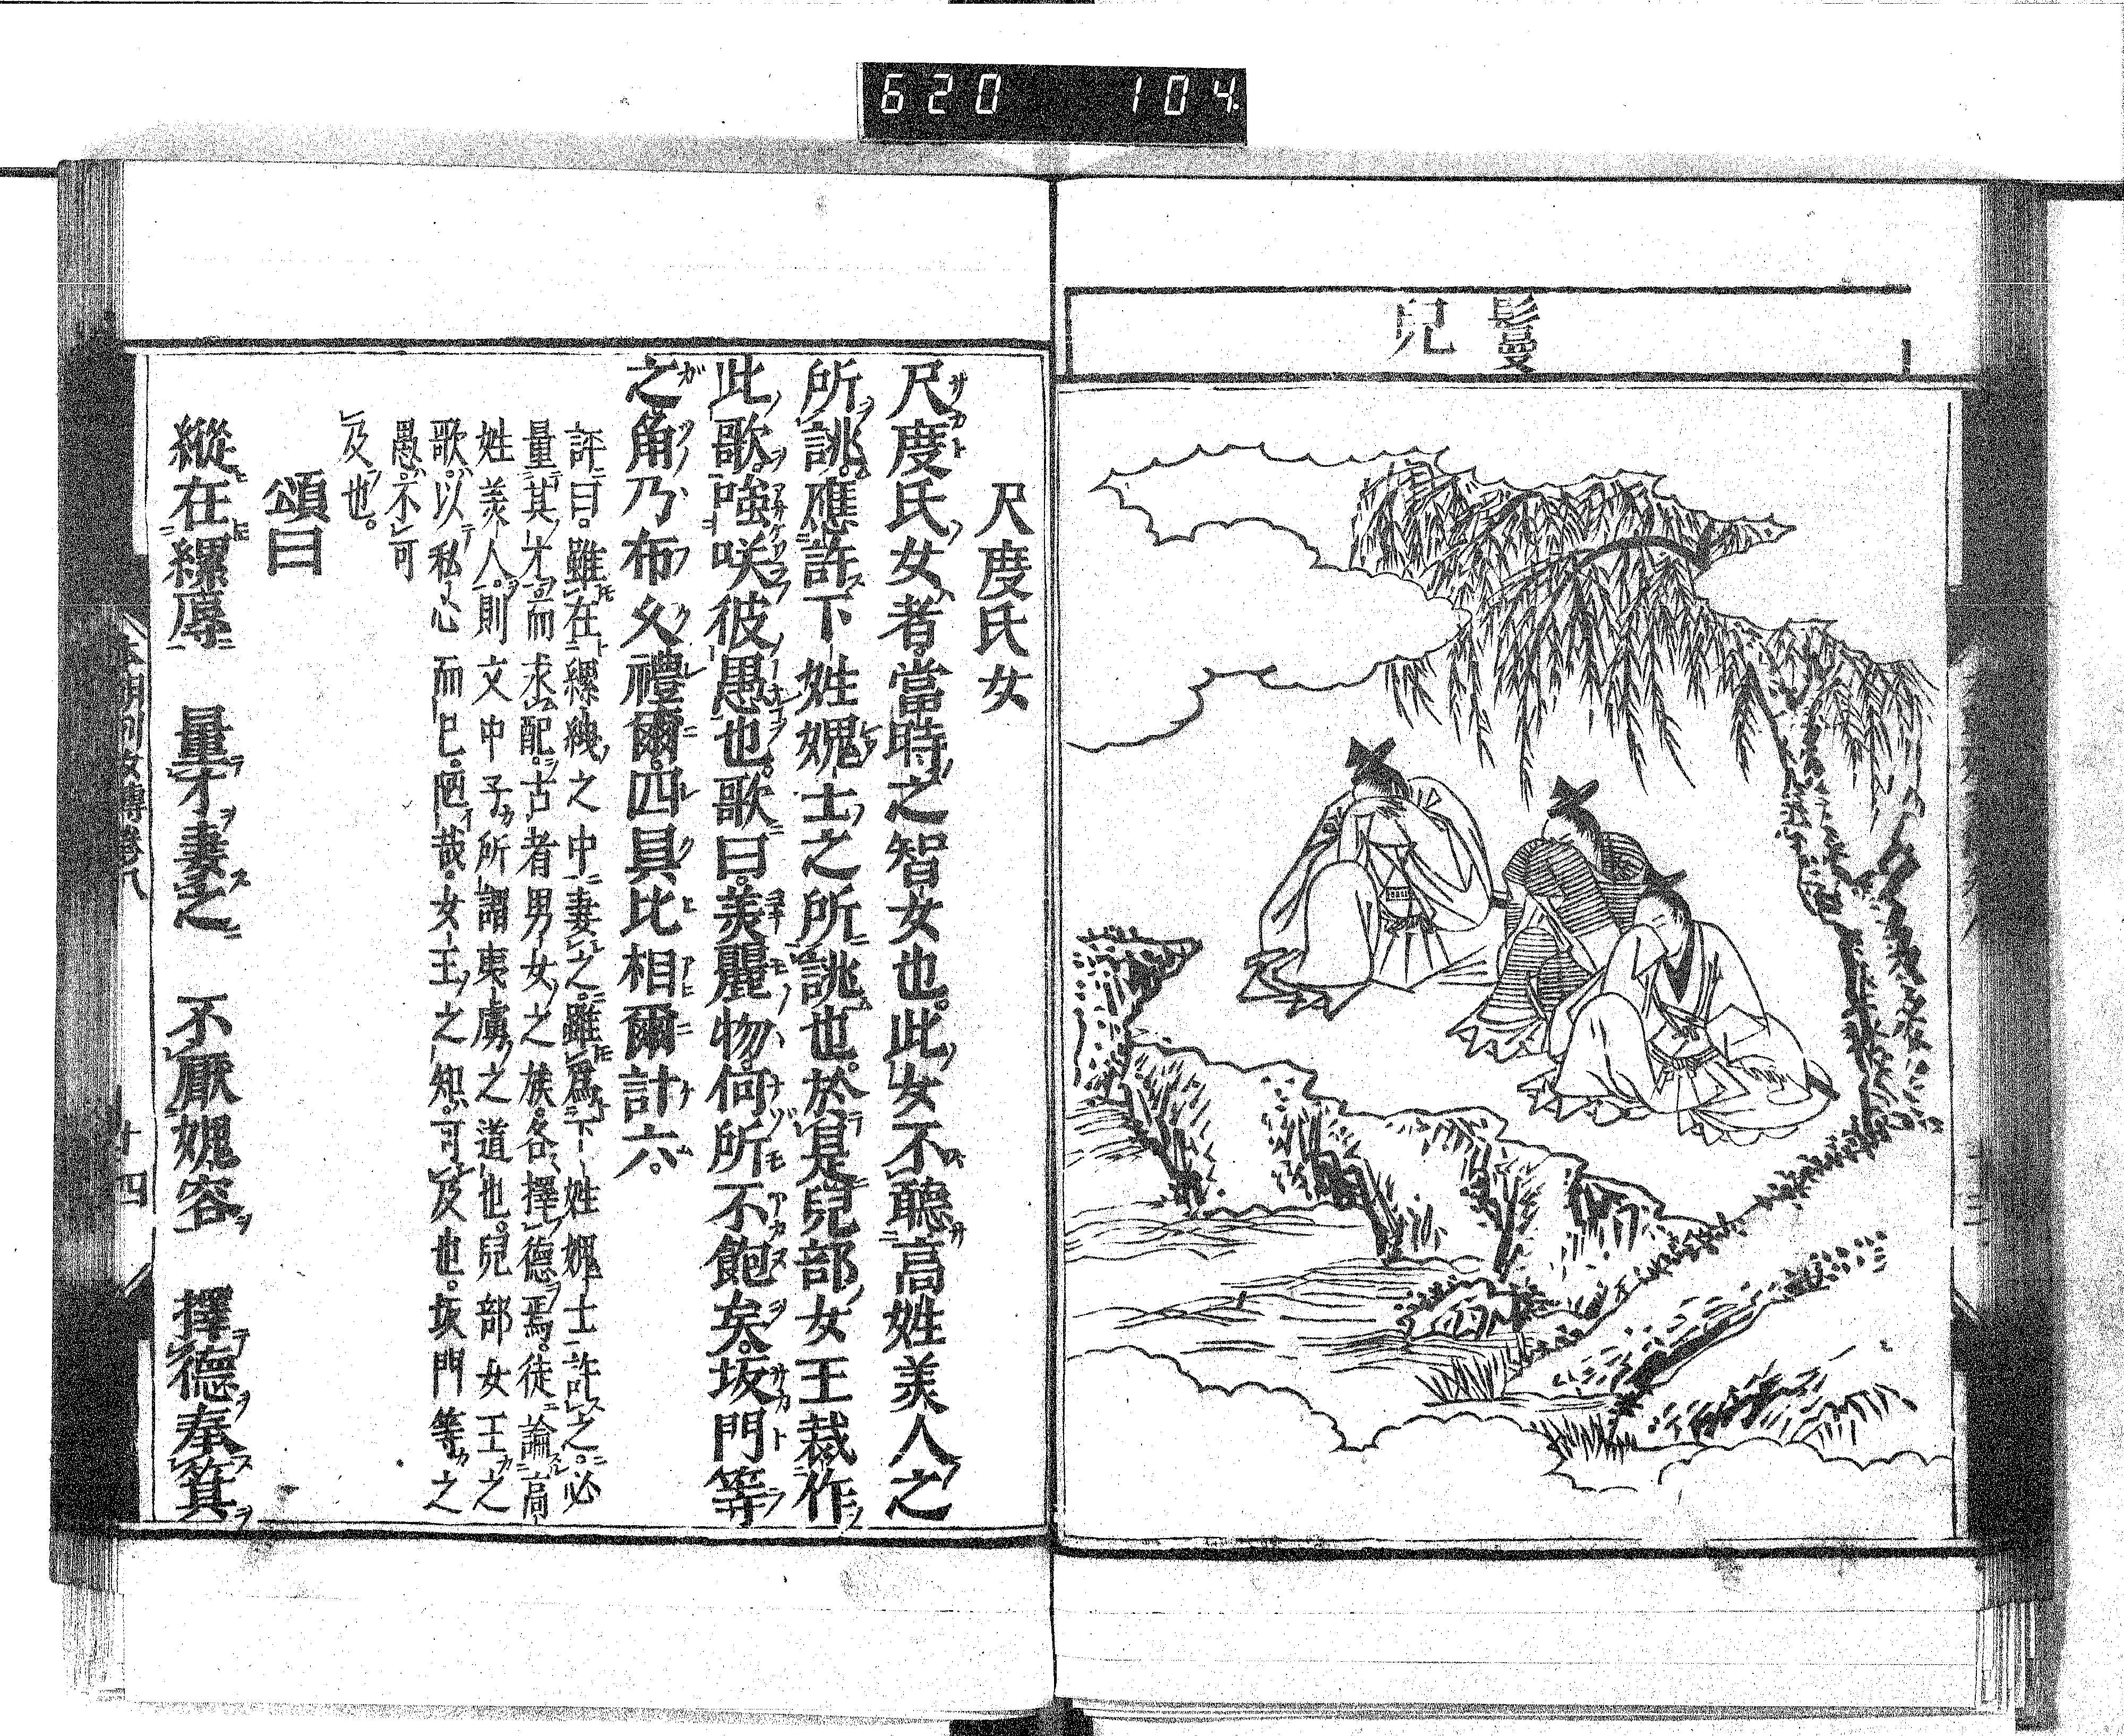 620 104.
鬘
兒
尺度氏女
尺度氏女者當時之智女也。此女不聽高姓美人之
所誂。應許下姓媿士之所誂也。於是兒部女王裁作
此歌。嗤咲彼愚也。歌曰。美麗物。何所不飽矣。坂門等
之角乃布久禮爾。四具比相爾計六。
評曰。雖在縲絏之中妻之。雖爲下姓媿士許之。必
量其才而求配。古者男女之族。各擇德焉。徒論高
姓美人。則文中子所謂夷虜之道也。兒部女王之
歌。以私心而已。陋哉。女王之知。可及也。坂門等之
愚。不可
及也。
頌曰
縱在縲辱 量才妻之 不厭媿容 擇德奉箕
本朝列女傳卷八
十四